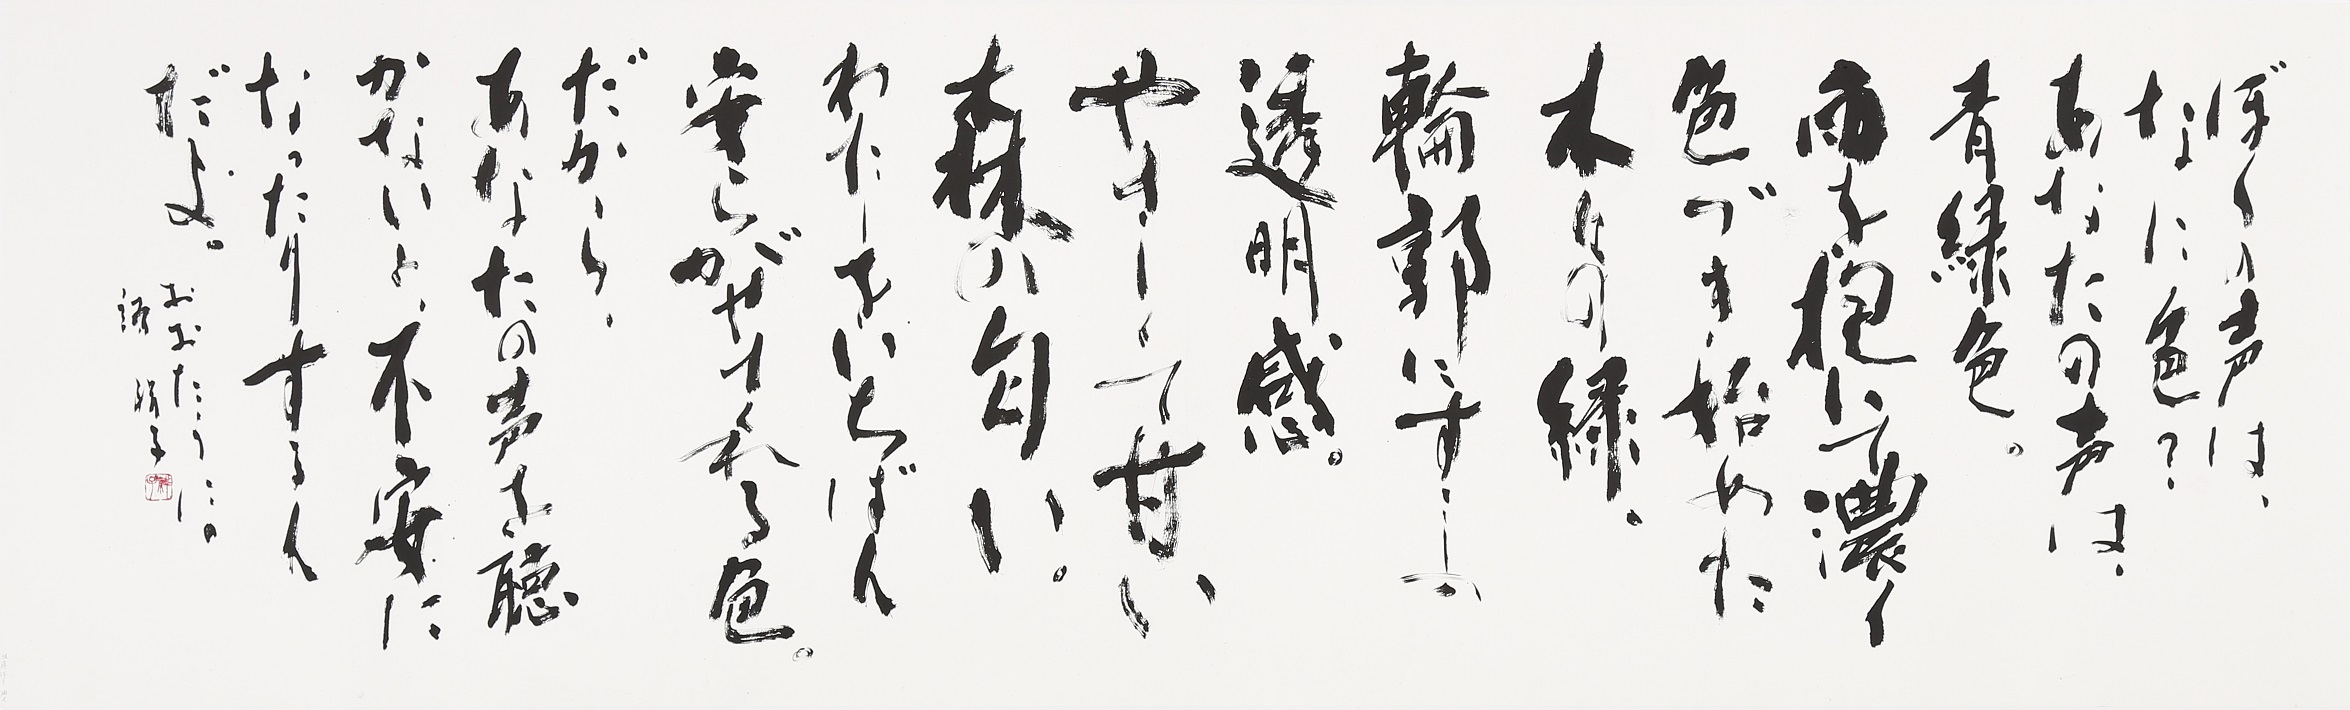 ぼくの声は、
なに色？
あなたの声は、
青緑色。
雨を抱いて濃く
色づき始めた
木々の緑。
輪郭にすこしの
透明感。
やさしくて甘い
森の匂い。
わたしをいちばん
安らがせてくれる色。
だから、
あなたの声を聴
かないと、不安に
なったりするん
だよ。
おおたうにの
語